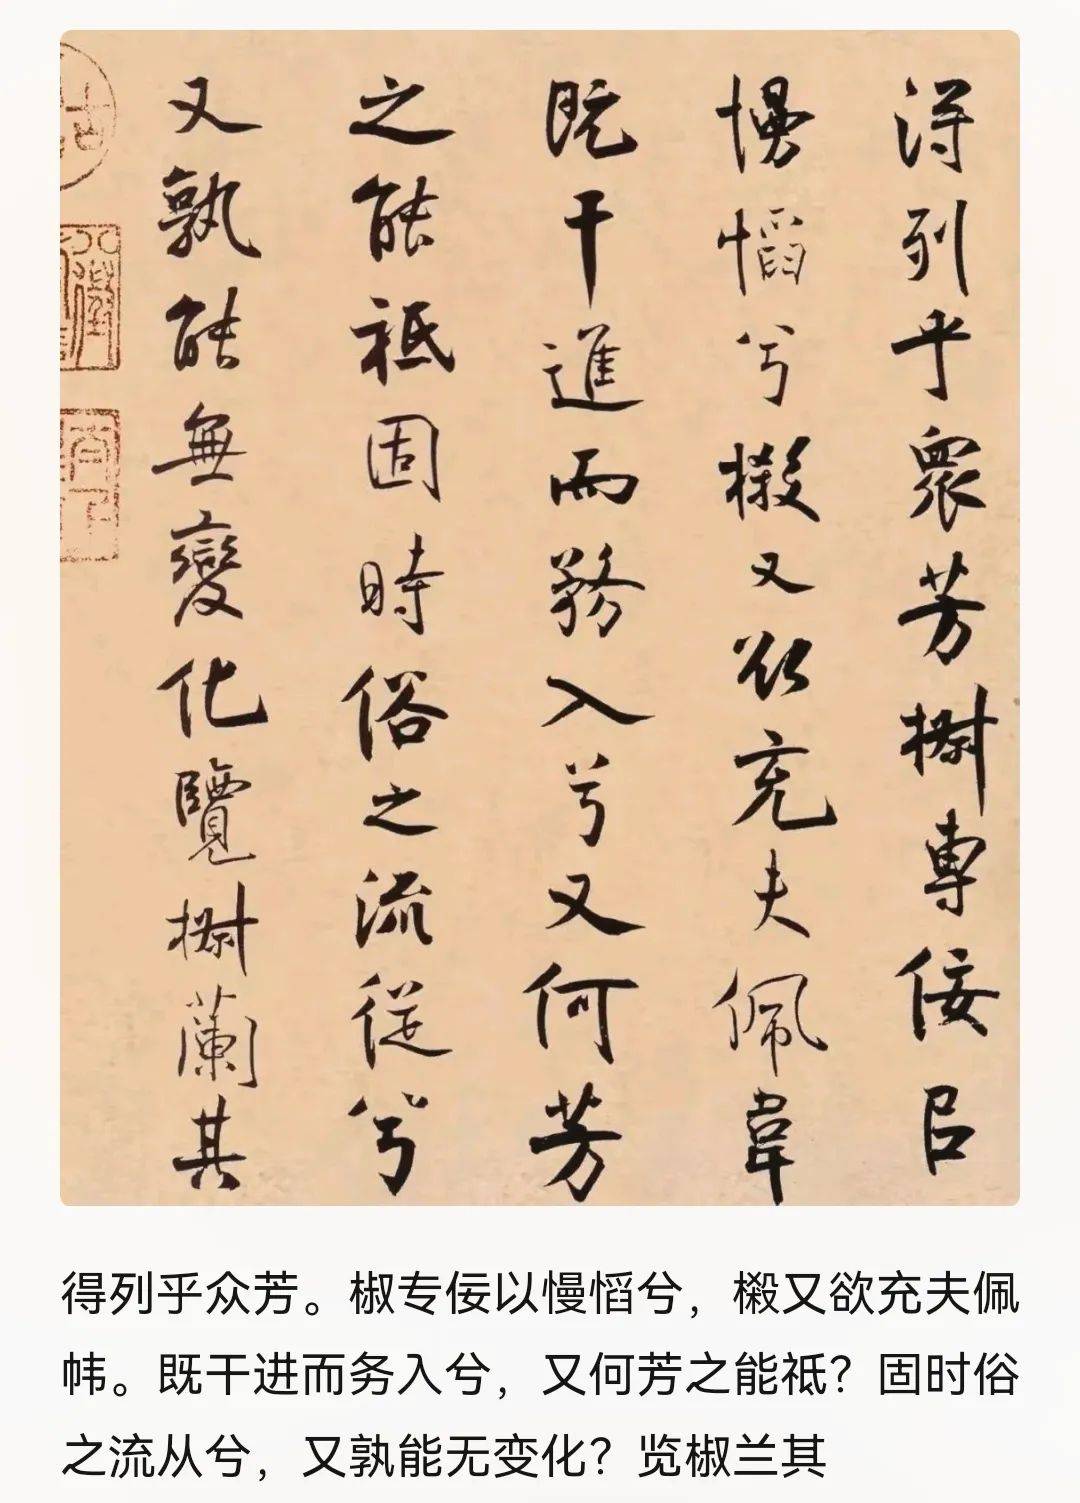 得列乎眾芳椒專佞㠯
慢慆兮樧又欲充夫佩韋
既干進而務入兮又何芳
之能祗固時俗之流從兮
又孰能無變化覽椒蘭其
得列乎众芳。椒专佞以慢慆兮，樧又欲充夫佩
帏。既干进而务入兮，又何芳之能祗？固时俗
之流从兮，又孰能无变化？览椒兰其